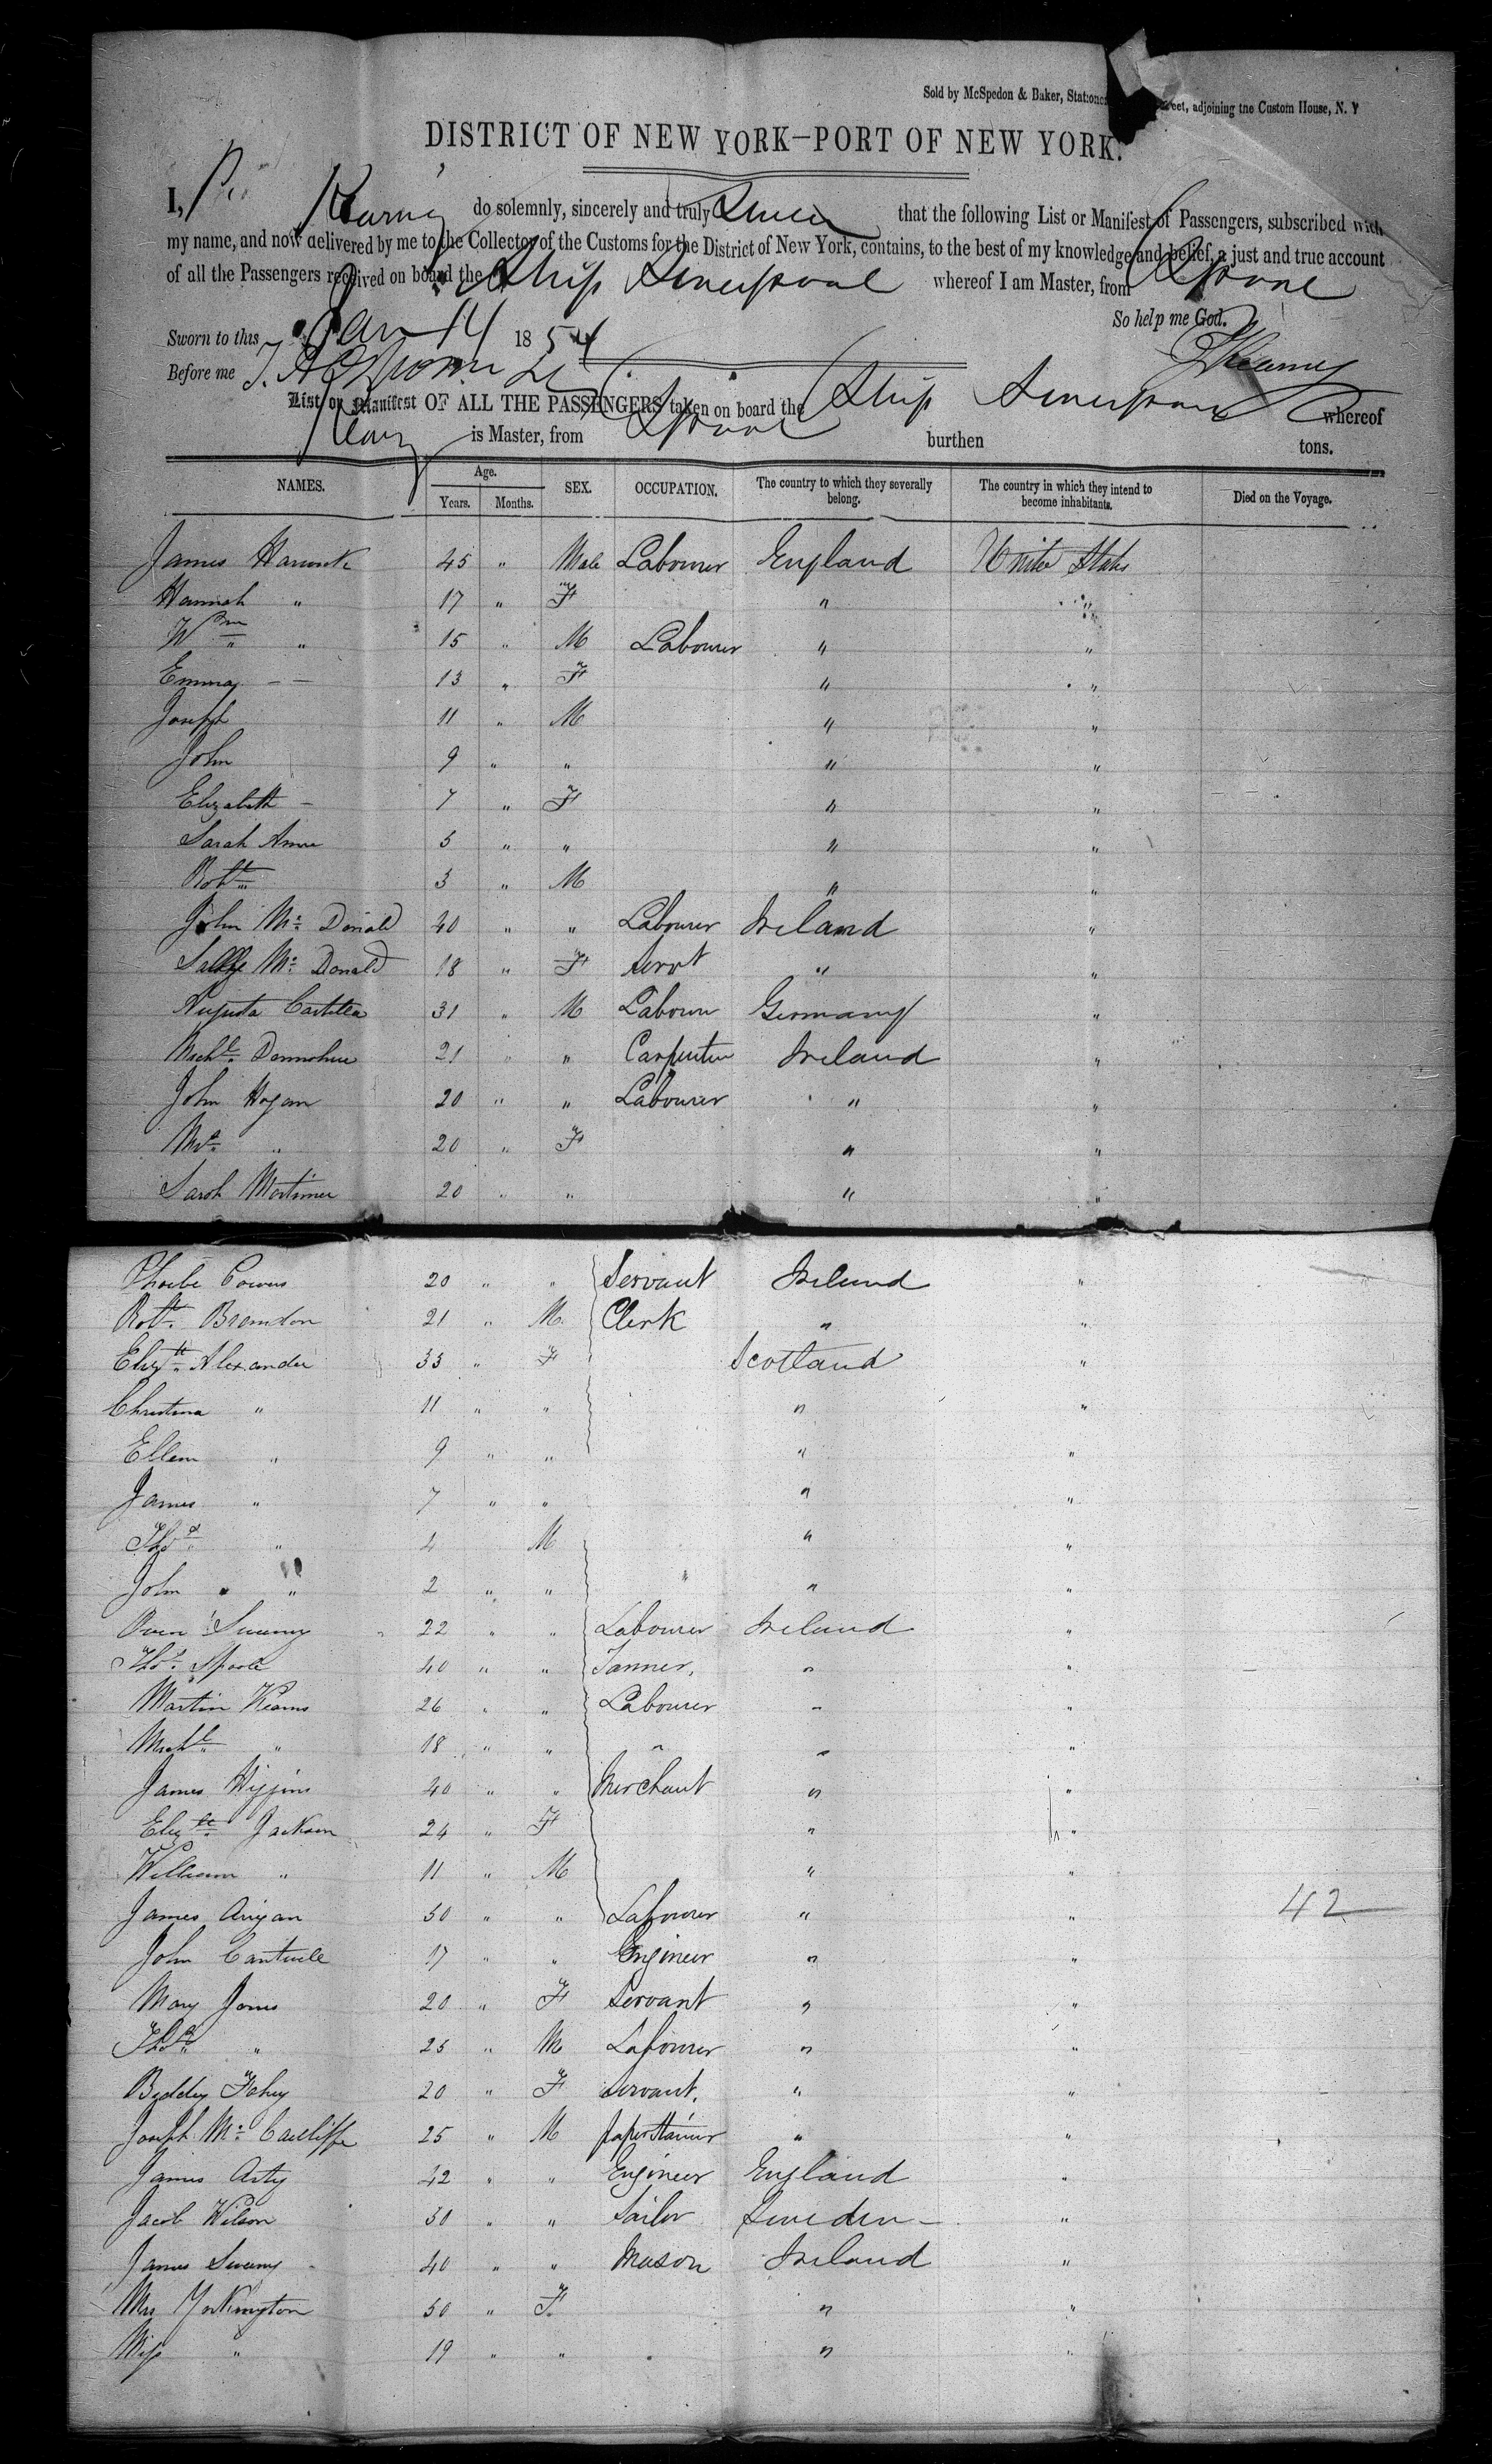 Sold by McSpedon & Baker, Stationers eet, adjoining the Custom House, N. Y
DISTRICT OF NEW YORK—PORT OF NEW YORK.
I, Kearney do solemnly, sincerely and truly Swear that the following List or Manifest of Passengers, subscribed with
my name, and now delivered by me to the Collector of the Customs for the District of New York, contains, to the best of my knowledge and belief, a just and true account
of all the Passengers received on board the Ship Liverpool whereof I am Master, from Lpool
So help me God.
Sworn to this Jan 14 1854 Kearney
Before me
List or Manifest OF ALL THE PASSENGERS taken on board the Ship Liverpool whereof
Kearney is Master, from Lpool burthen tons.
NAMES. Age. Years. Months. SEX. OCCUPATION. The country to which they severally belong. The country in which they intend to become inhabitants. Died on the Voyage.
James Harwick 45 " Male Labourer England United States
Hannah " 17 " F " "
Wm " 15 " M Labourer " "
Emma — — 13 " F " "
Joseph 11 " M " "
John 9 " " " "
Elizabeth — 7 " F " "
Sarah Anne 5 " " " "
Robt 3 " M " "
John Mc Donald 40 " " Labourer Ireland "
Sally Mc Donald 18 " F Servt " "
Augusta 31 " M Labourer Germany "
Michl Donnohue 21 " " Carpenter Ireland "
John Hogan 20 " " Labourer " "
Mrs " 20 " F " "
Sarah Mortimer 20 " " " "
Phoebe Cowen 20 " " Servant Ireland "
Robt Brandon 21 " M. Clerk " "
Elizth Alexander 33 " F Scotland "
Christina " 11 " " " "
Ellen " 9 " " " "
James " 7 " " " "
Thos " 4 M " "
John " " 2 " " " " "
Owen Sweeny 22 " " Labourer Ireland "
Thos Spoole 40 " " Tanner, " "
Martin Kearns 26 " " Labourer " "
Michl " 18 " " " " "
James Higgins 40 " " Merchant " "
Elizth Jackson 24 " F " "
William " 11 " M " "
James Arigan 50 " " Labourer " "
42
John Cantwell 17 " " Engineer " "
Mary Jones 20 " F Servant " "
Thos " 25 " M Labourer " "
Biddy Fahey 20 " F Servant. " "
Joseph Mc 25 " M paperstainer " "
James Arty 42 " " Engineer England "
Jacob Wilson 30 " " Sailor Sweden — "
James Sweeny 40 " " Mason Ireland "
Mrs Yorkington 50 " F. " "
Miss " 19 " " " "